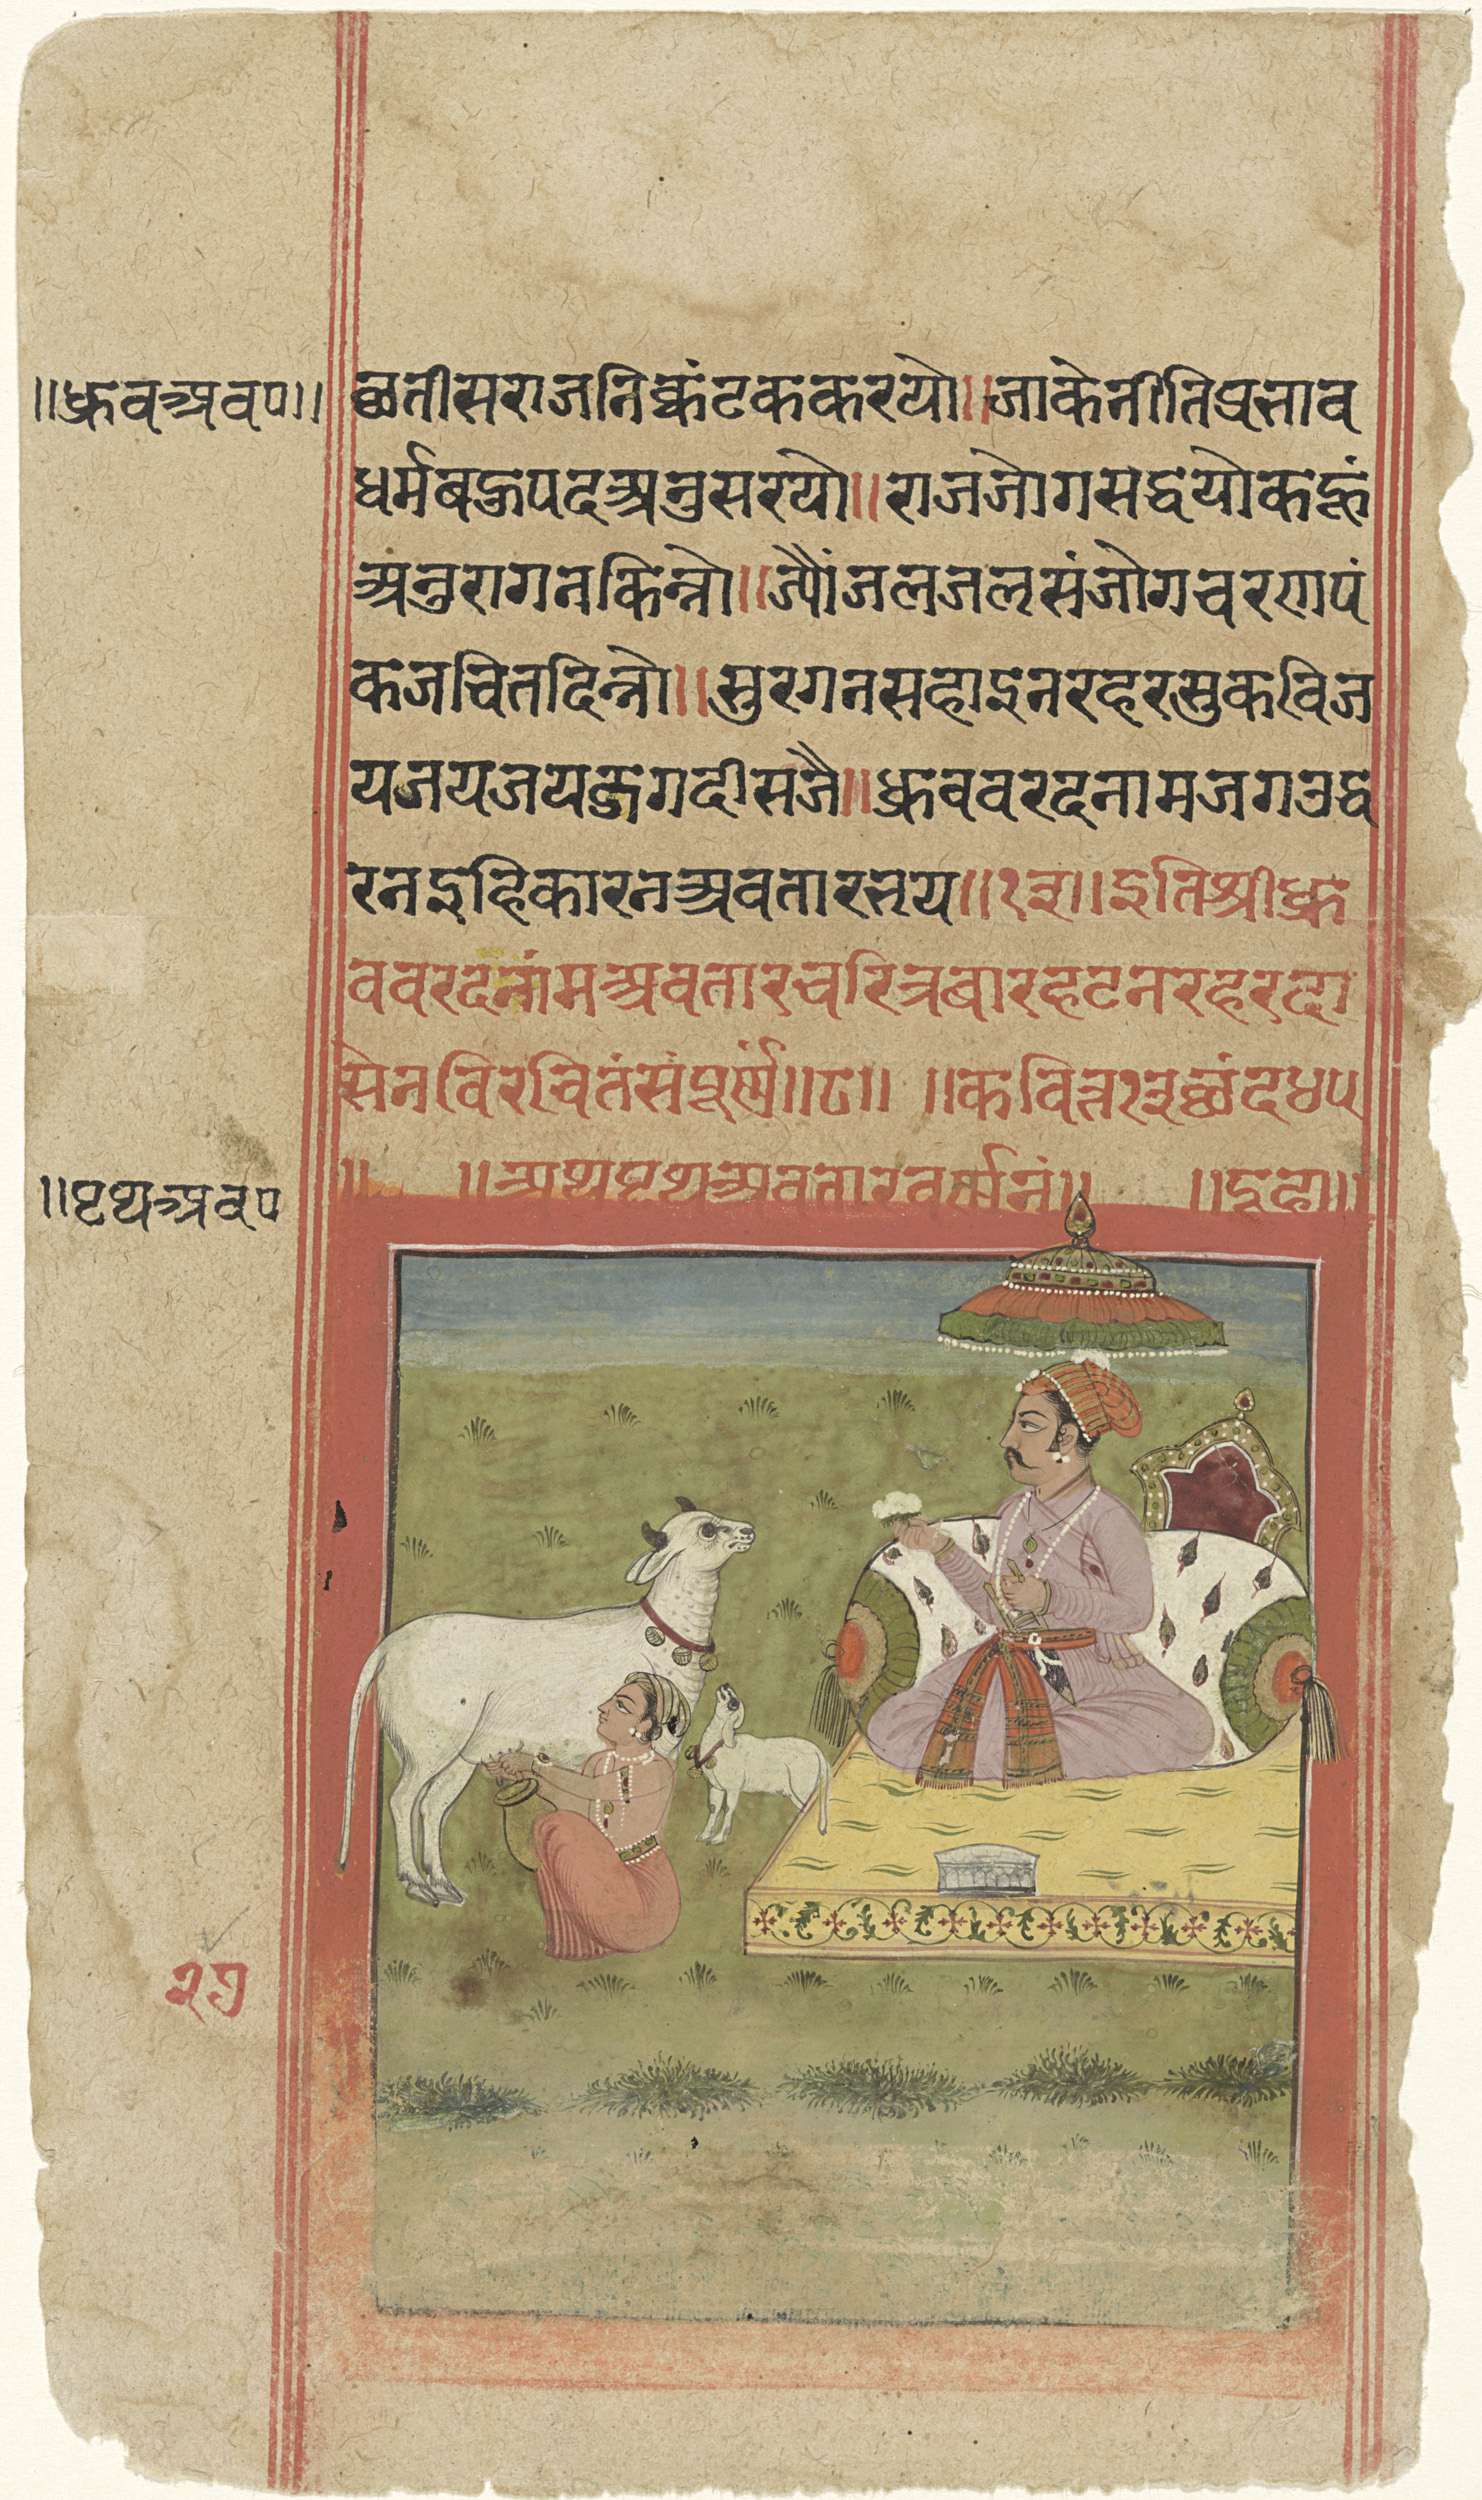 ॥ध्रुवअवप॥
छतीसराजनिष्कंटककरयो॥जाकेनीतिप्रभाव
धर्मबहुपदअनुसरयो॥राजजोगसद्वयोकहूं
अनुरागनकिन्नो॥ज्यौंजलजलसंजोगचरणपं
कजचितदिन्नो॥सुरगनसहाइनरहरसुकविज
यजयजयजुगदीसजै॥ध्रुववरदनामजगउद्ध
रनइहिकारनअवतारभय॥१३॥इतिश्रीध्रु
ववरदनांमअवतारचरित्रबारहटनरहरदा
सेनविरचितंसंपूर्णं॥८॥ ॥कवित्त१३छंद४प
॥ ॥अथपृथअवतारवर्णनं॥ ॥दूहा॥
॥पृथअवप
२७